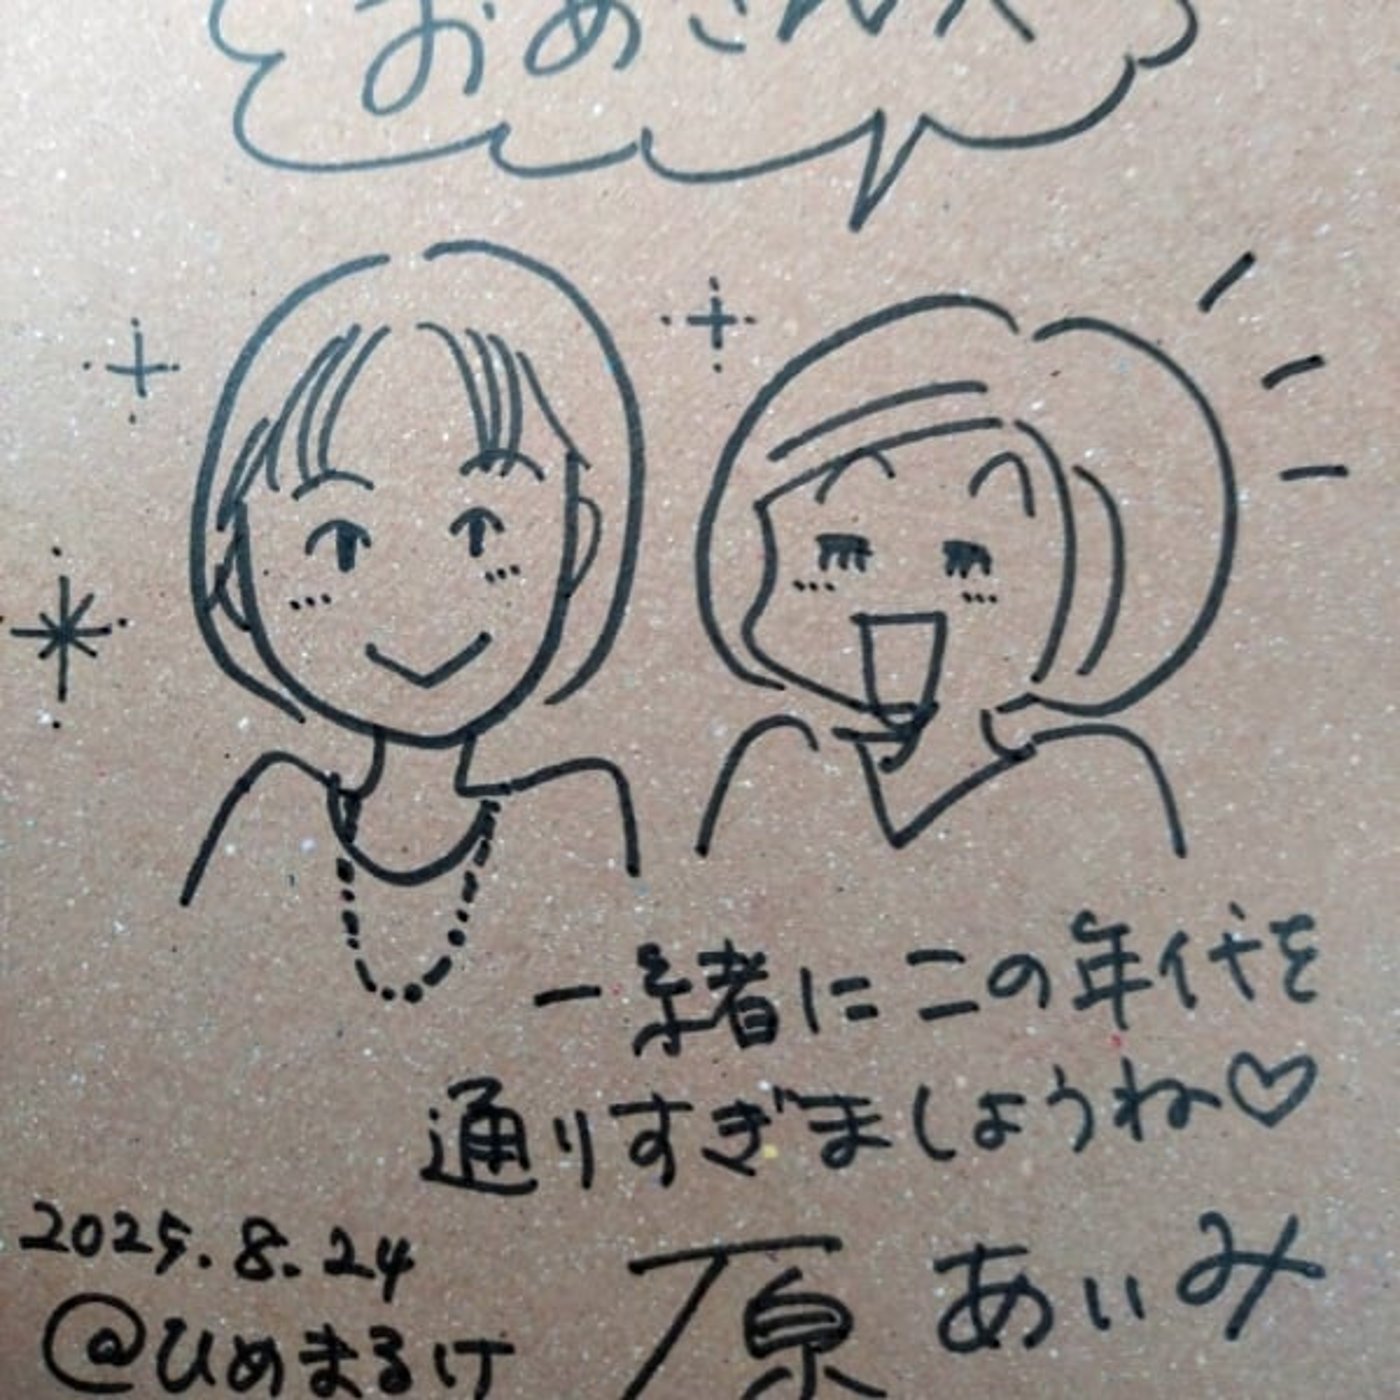 おめさん へ
一緒にこの年代を
通りすぎましょうね♡
2025.8.24
@ひめまるけ
原 あいみ